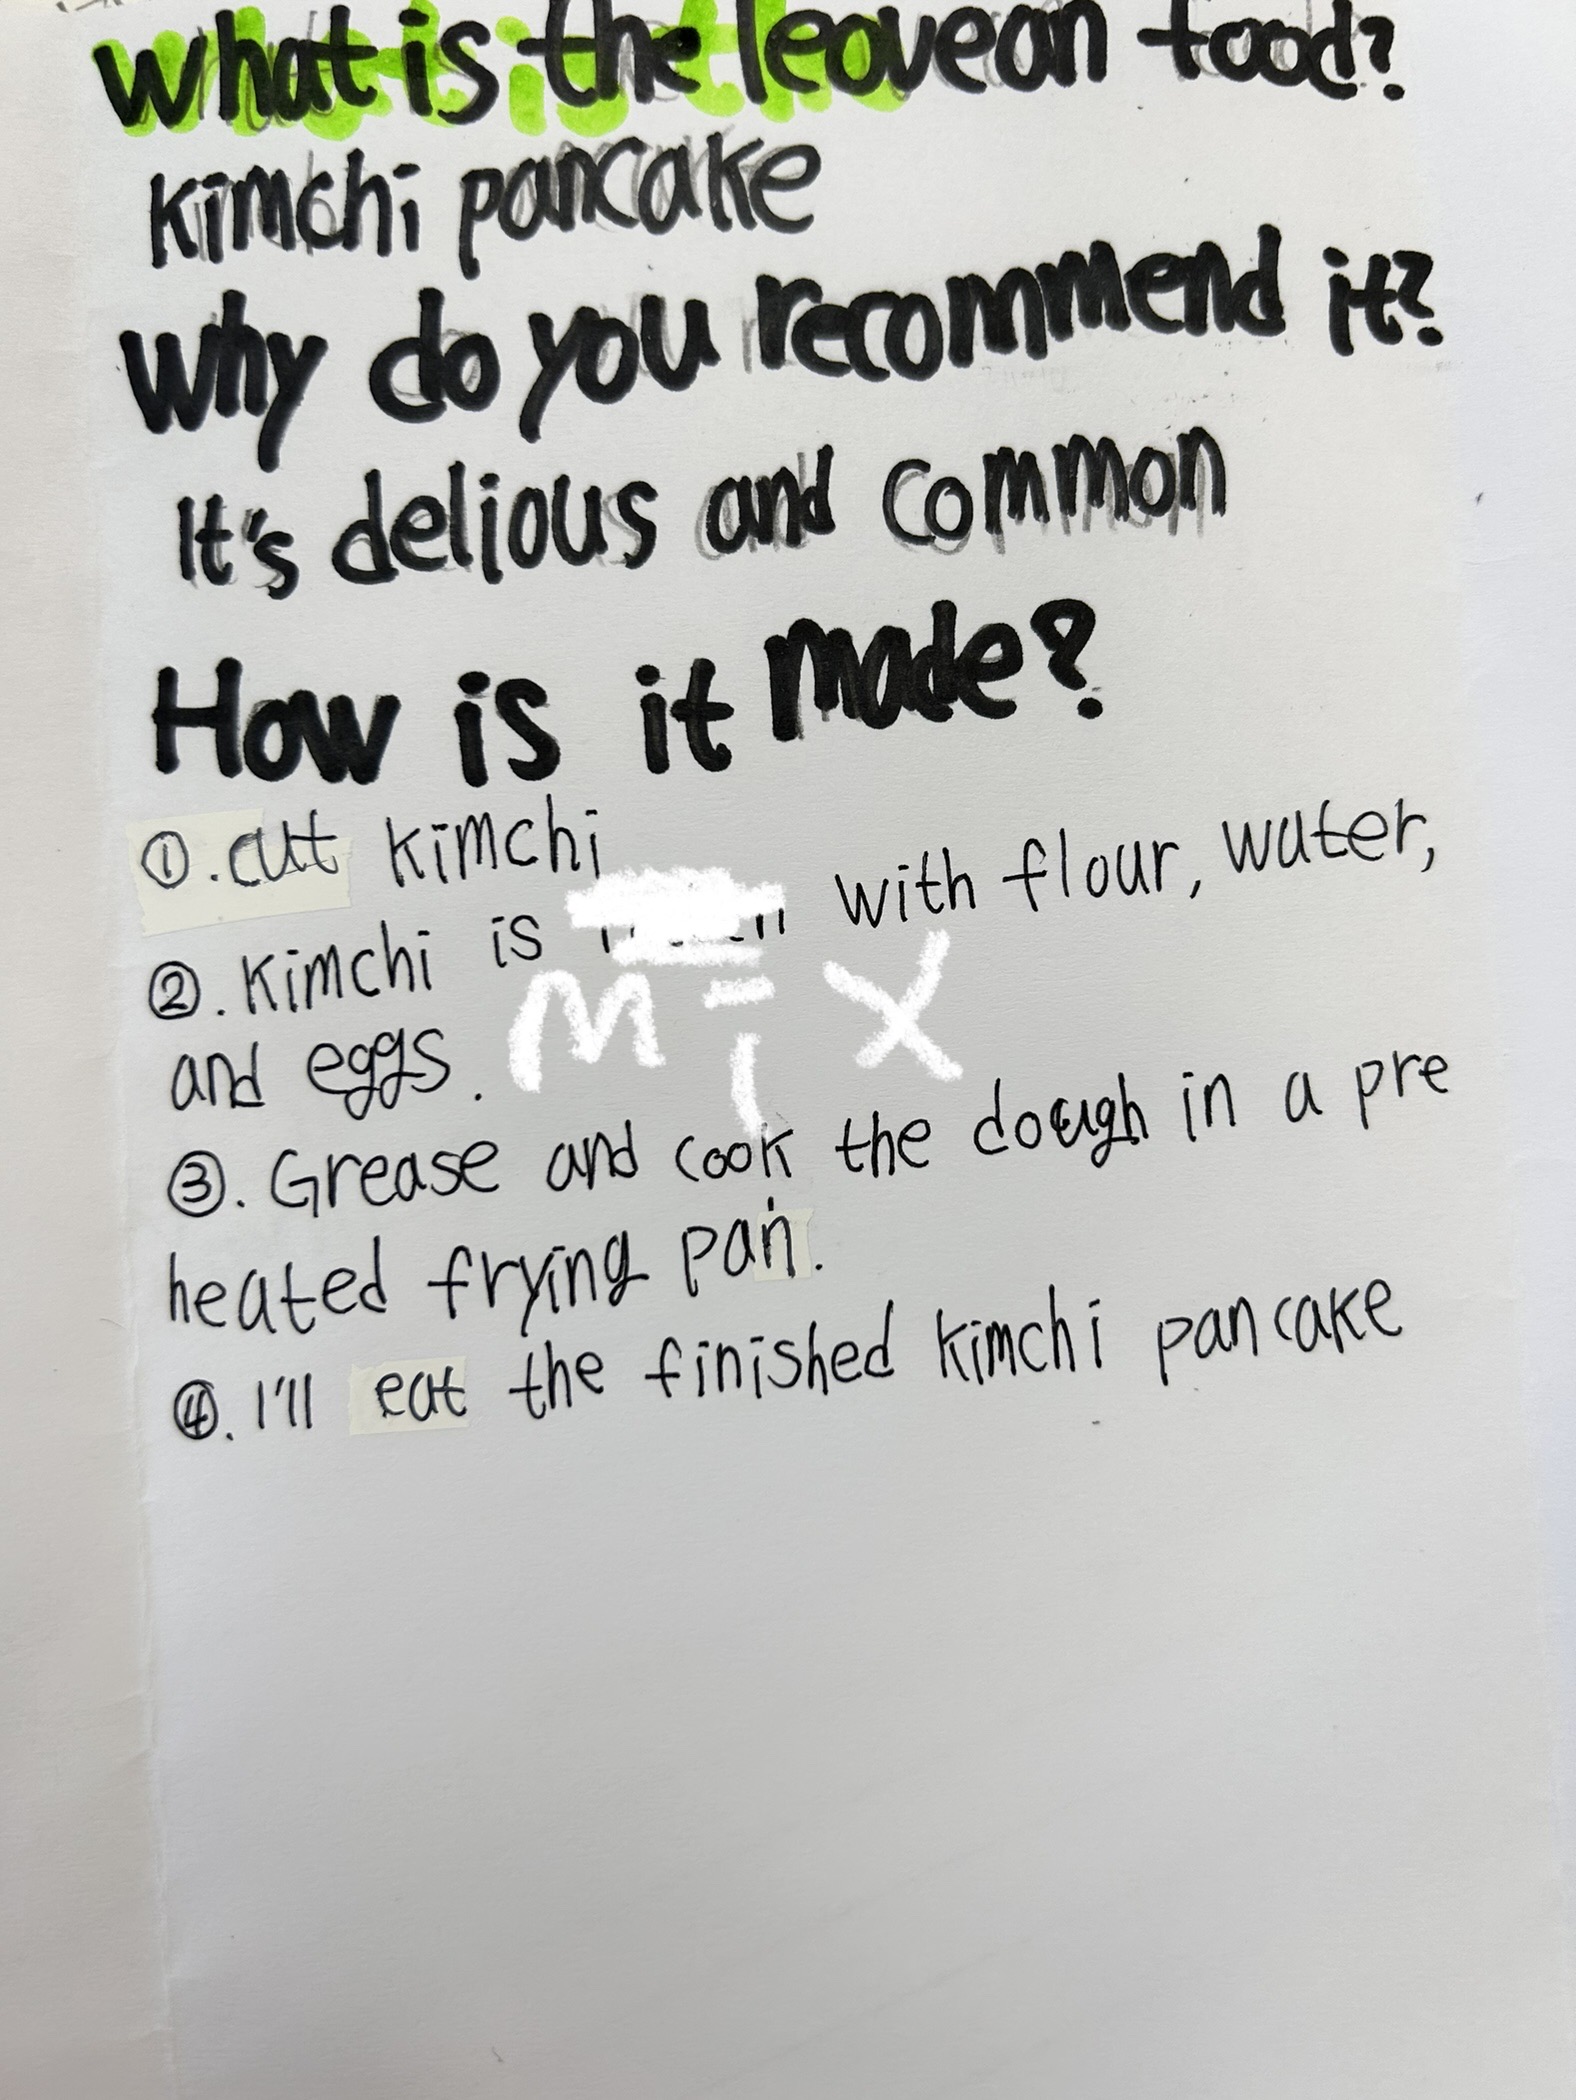 What is the leovean food?
Kimchi pancake
Why do you recommend it?
It's delious and common
How is it made?
①. cut kimchi
②. Kimchi is with flour, water,
mix
and eggs.
③. Grease and cook the dough in a pre
heated frying pan.
④. I'll eat the finished kimchi pancake